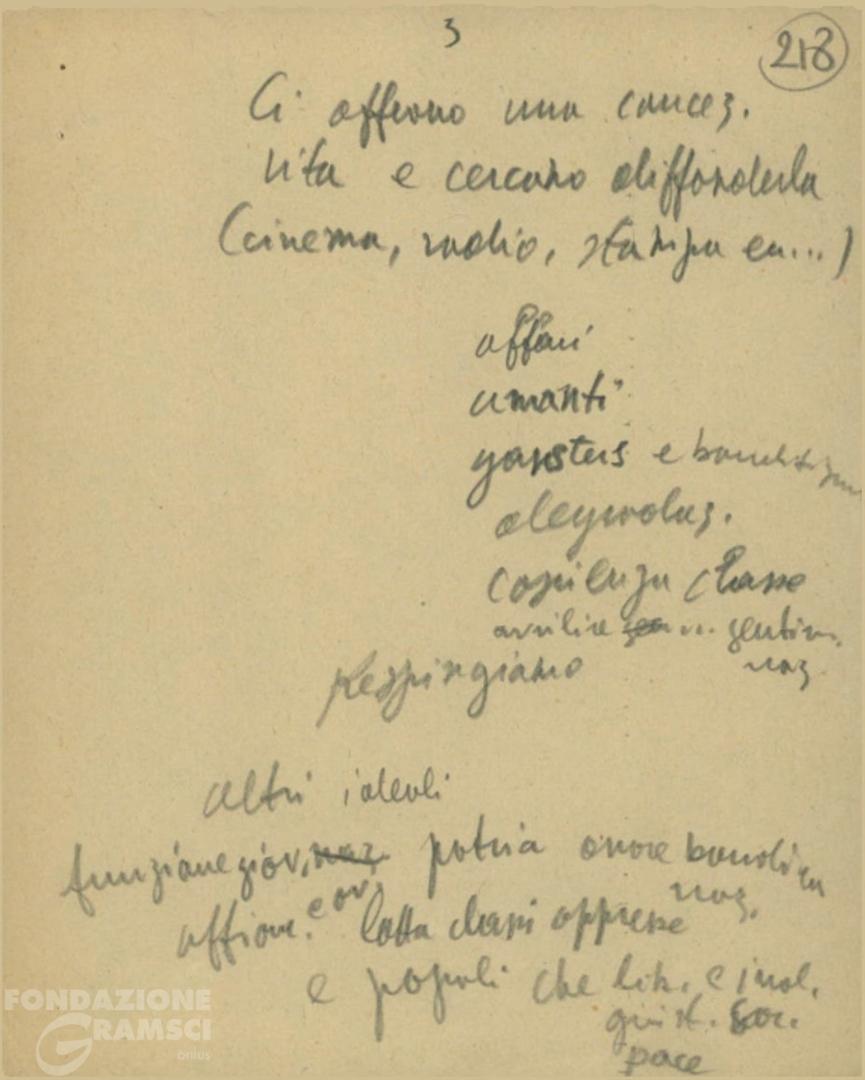 3
218
Ci offrono una concez.
vita e cercano diffonderla
(cinema, radio, stampa ecc...)
affari
amanti
gansters e banditismo
degradaz.
coscienza classe
avvilire sentim.
naz.
Respingiamo
altri ideali
funzione giov., naz. patria onore bandiera
naz.
affian. e or. lotta classi oppresse
e popoli che lib. e ind.
giust. soc.
pace
FONDAZIONE
GRAMSCI
onlus